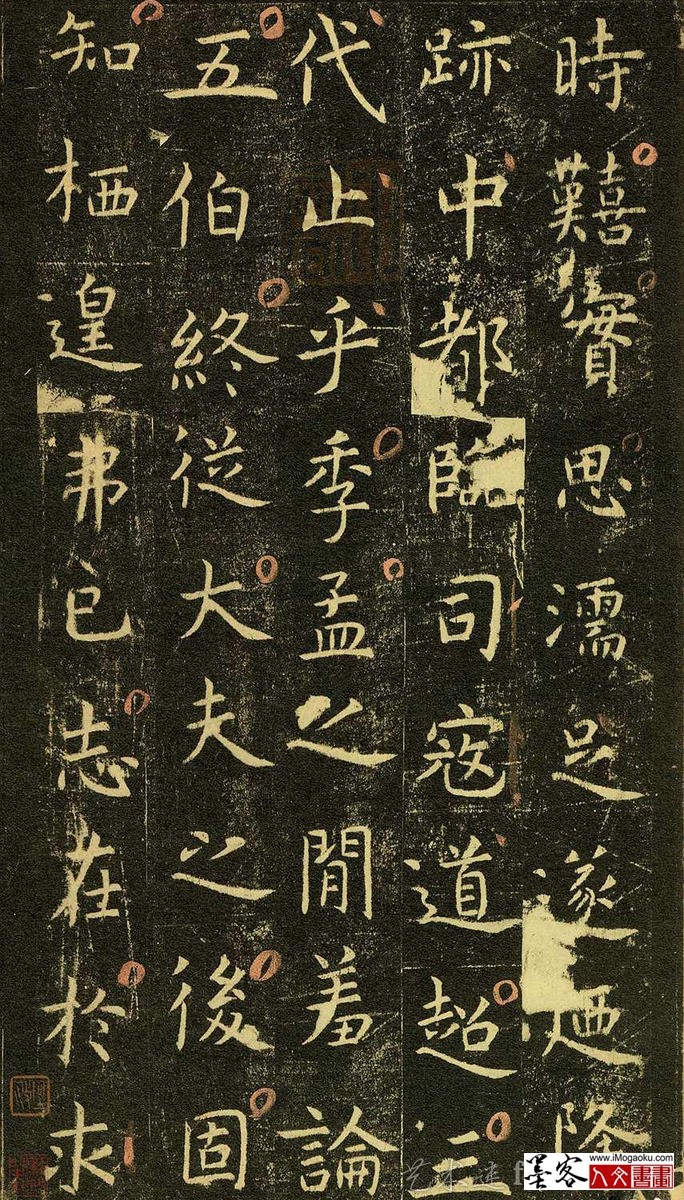 時囏實思濡足遂迺降
跡中都臨司寇道超三
代止乎季孟之閒羞論
五伯終從大夫之後固
知栖遑弗已志在於求
墨客
www.iMogaoku.com
人文書畫